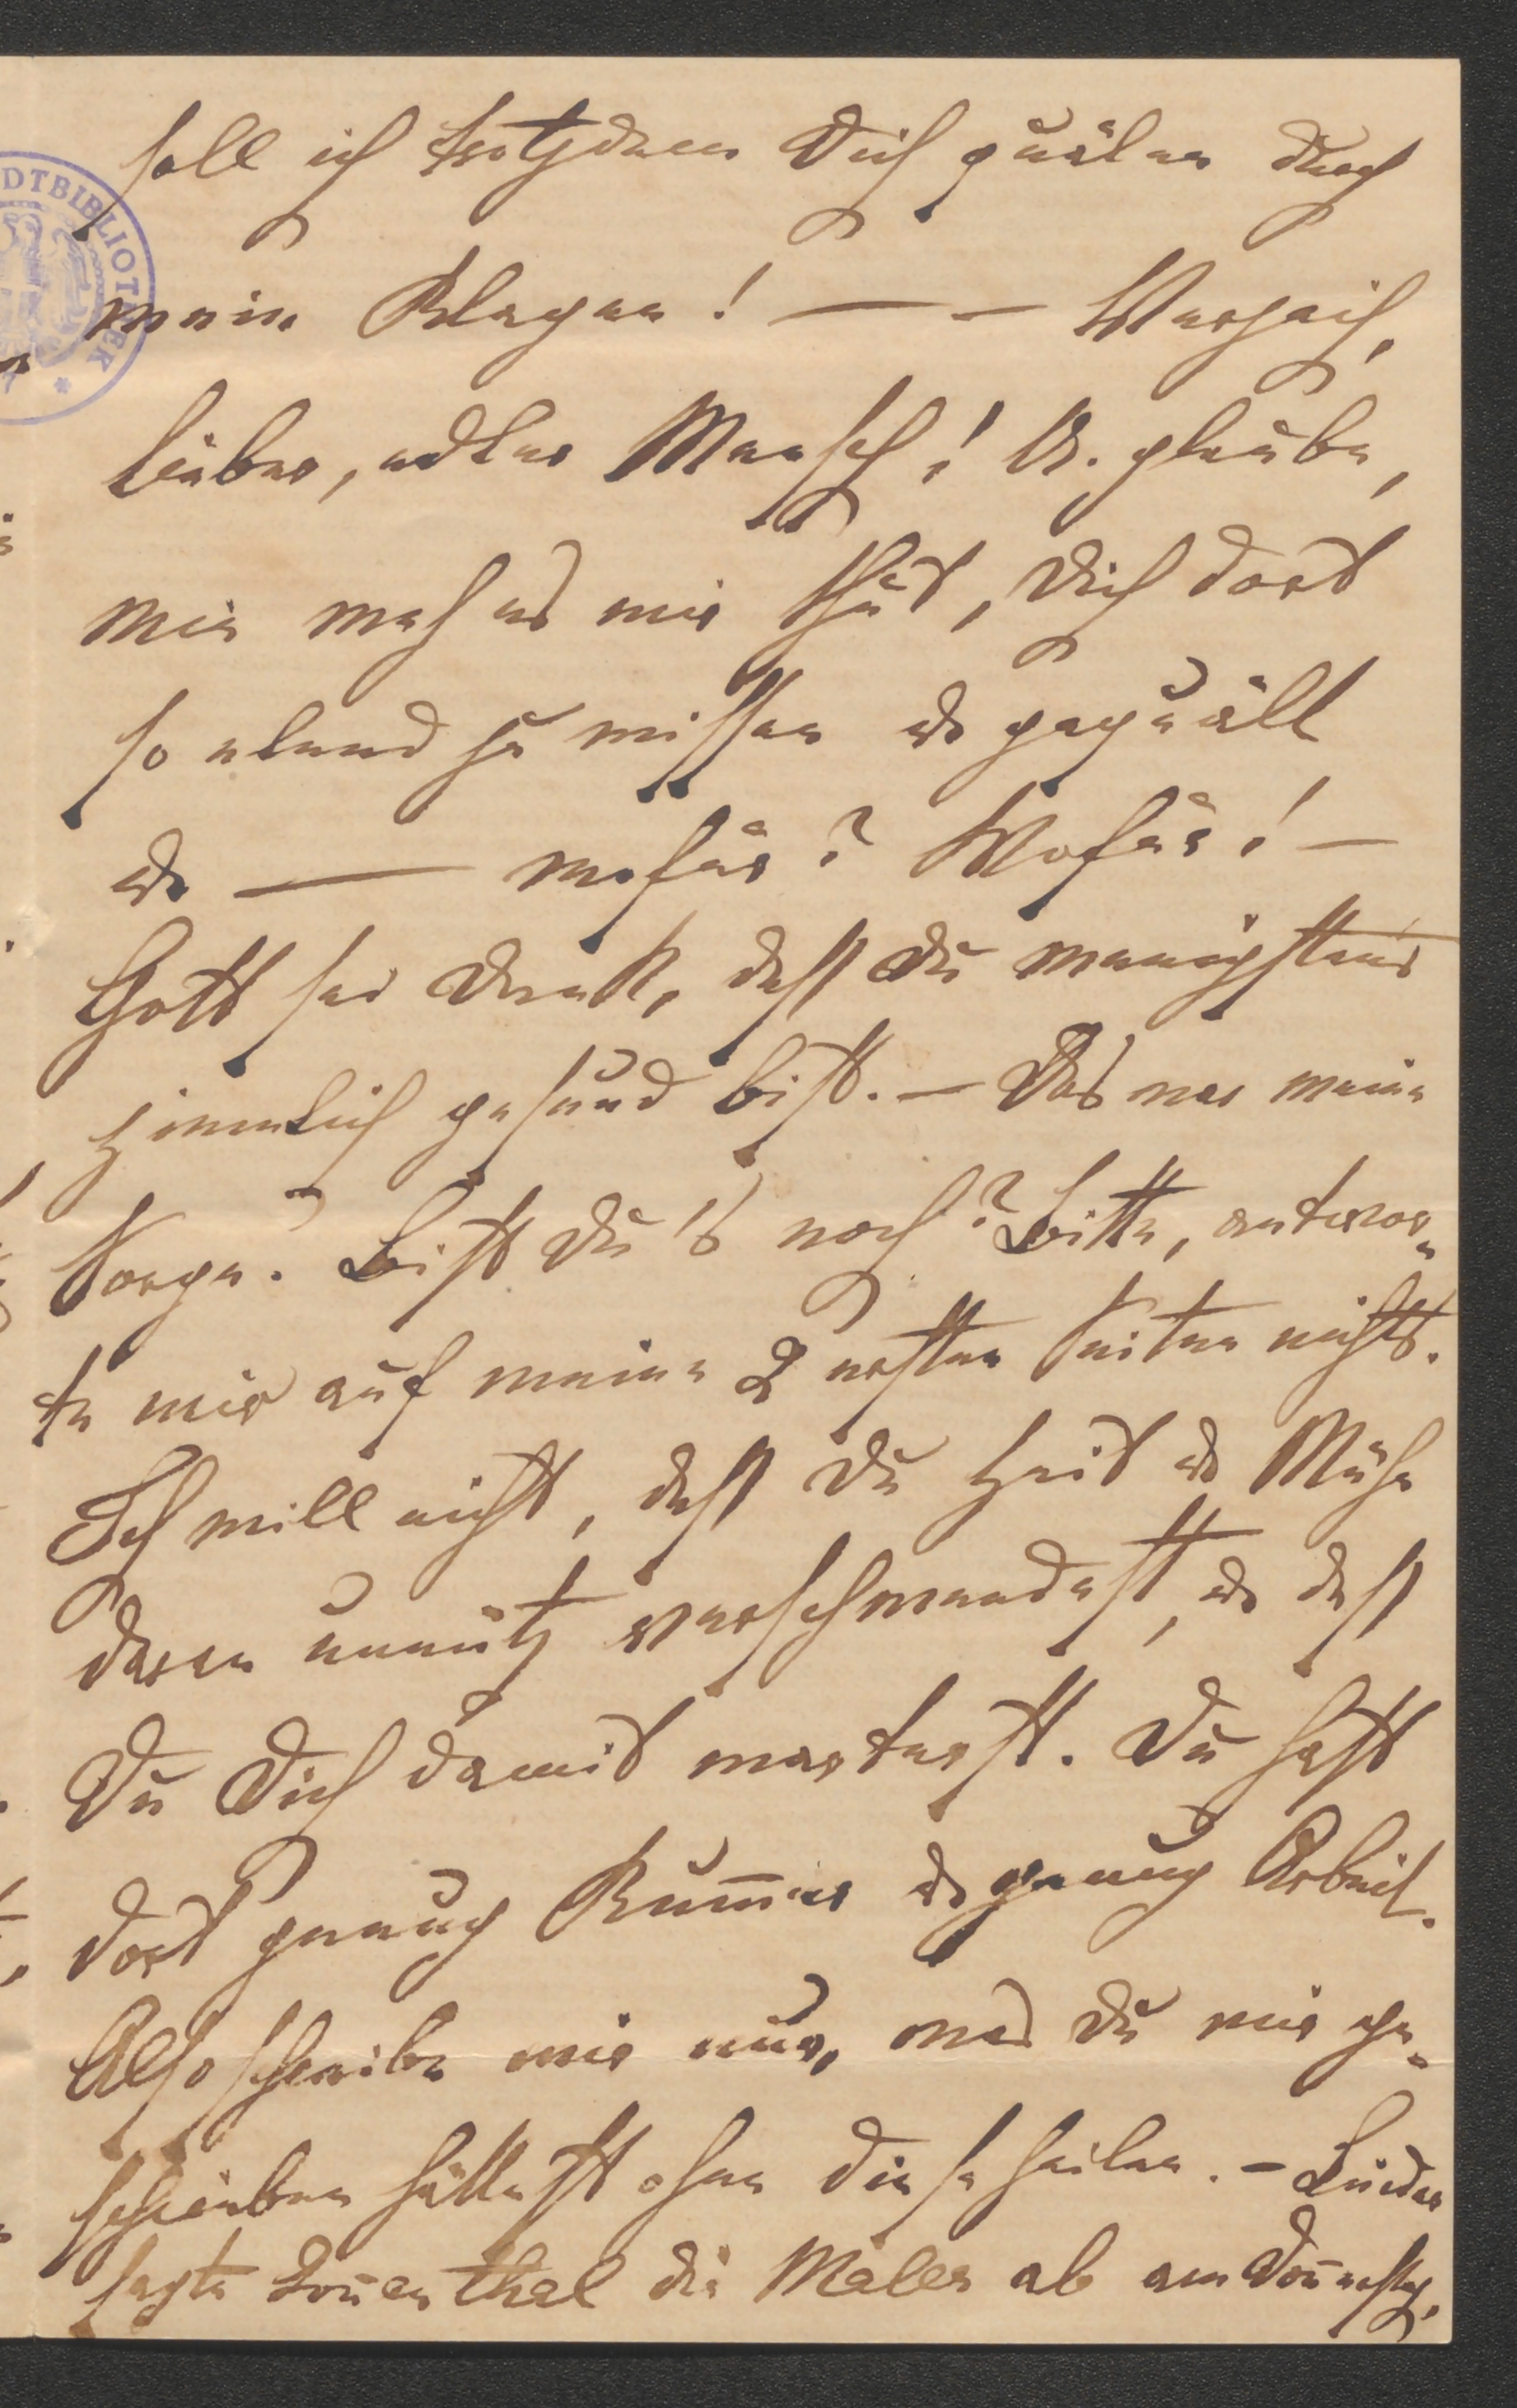 soll ich trotzdem Dich quälen durch
mein Klagen! — – Verzeih,
lieber, edler Mensch! U. glaube,
wie weh es mir thut, Dich dort
so elend zu wissen u gequält
u — wofür? Wofür! –
Gott sei Dank, daß Du wenigstens
ziemlich gesund bist. – Das war meine
Sorge. Bist Du's noch? Bitte, antwor-
te mir auf meine 2 ersten Seiten nichts.
Ich will nicht, daß Du Zeit u Mühe
daran unnütz verschwendest, u daß
Du Dich damit marterst. Du hast
dort genug Kum̄er u genug Arbeit.
Also schreibe mir nur, was Du mir ge-
schrieben hättest ohne diese Zeilen. – Leider
sagte Son̄enthal die Maler ab am Don̄erstag,
DTBIBLIOT EK